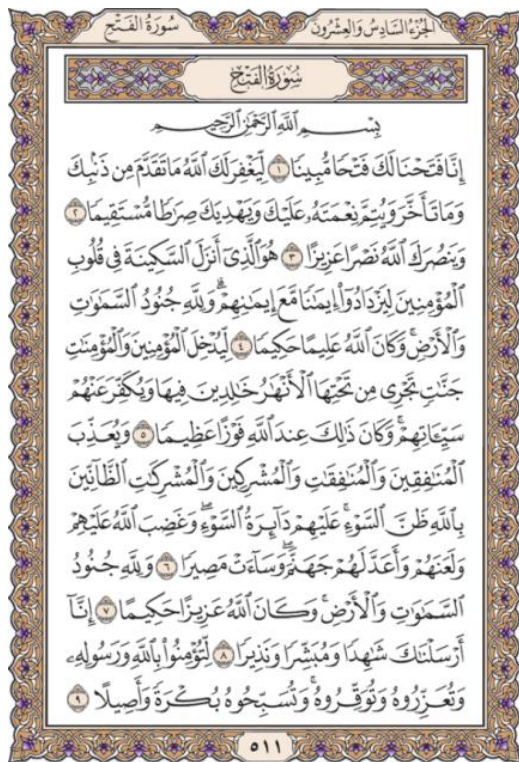 الجُزْءُ السَّادِسُ وَالعِشْرُونَ سُورَةُ الفَتْحِ
سُورَةُ الفَتْحِ
بِسْمِ ٱللَّهِ ٱلرَّحْمَٰنِ ٱلرَّحِيمِ
إِنَّا فَتَحْنَا لَكَ فَتْحًا مُّبِينًا ١ لِّيَغْفِرَ لَكَ ٱللَّهُ مَا تَقَدَّمَ مِن ذَنۢبِكَ
وَمَا تَأَخَّرَ وَيُتِمَّ نِعْمَتَهُۥ عَلَيْكَ وَيَهْدِيَكَ صِرَٰطًا مُّسْتَقِيمًا ٢
وَيَنصُرَكَ ٱللَّهُ نَصْرًا عَزِيزًا ٣ هُوَ ٱلَّذِىٓ أَنزَلَ ٱلسَّكِينَةَ فِى قُلُوبِ
ٱلْمُؤْمِنِينَ لِيَزْدَادُوٓا۟ إِيمَٰنًا مَّعَ إِيمَٰنِهِمْ ۗ وَلِلَّهِ جُنُودُ ٱلسَّمَٰوَٰتِ
وَٱلْأَرْضِ ۚ وَكَانَ ٱللَّهُ عَلِيمًا حَكِيمًا ٤ لِّيُدْخِلَ ٱلْمُؤْمِنِينَ وَٱلْمُؤْمِنَٰتِ
جَنَّٰتٍ تَجْرِى مِن تَحْتِهَا ٱلْأَنْهَٰرُ خَٰلِدِينَ فِيهَا وَيُكَفِّرَ عَنْهُمْ
سَيِّـَٔاتِهِمْ ۚ وَكَانَ ذَٰلِكَ عِندَ ٱللَّهِ فَوْزًا عَظِيمًا ٥ وَيُعَذِّبَ
ٱلْمُنَٰفِقِينَ وَٱلْمُنَٰفِقَٰتِ وَٱلْمُشْرِكِينَ وَٱلْمُشْرِكَٰتِ ٱلظَّآنِّينَ
بِٱللَّهِ ظَنَّ ٱلسَّوْءِ ۚ عَلَيْهِمْ دَآئِرَةُ ٱلسَّوْءِ ۖ وَغَضِبَ ٱللَّهُ عَلَيْهِمْ
وَلَعَنَهُمْ وَأَعَدَّ لَهُمْ جَهَنَّمَ ۖ وَسَآءَتْ مَصِيرًا ٦ وَلِلَّهِ جُنُودُ
ٱلسَّمَٰوَٰتِ وَٱلْأَرْضِ ۚ وَكَانَ ٱللَّهُ عَزِيزًا حَكِيمًا ٧ إِنَّآ
أَرْسَلْنَٰكَ شَٰهِدًا وَمُبَشِّرًا وَنَذِيرًا ٨ لِّتُؤْمِنُوا۟ بِٱللَّهِ وَرَسُولِهِۦ
وَتُعَزِّرُوهُ وَتُوَقِّرُوهُ ۚ وَتُسَبِّحُوهُ بُكْرَةً وَأَصِيلًا ٩
٥١١